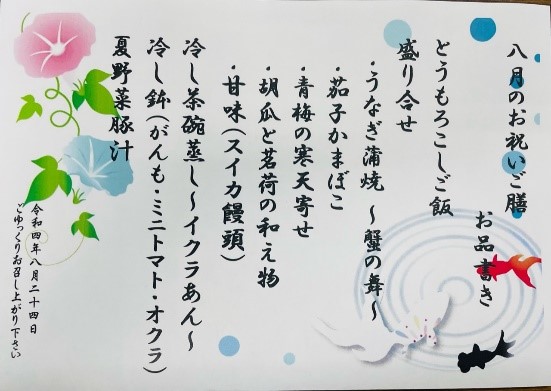 八月のお祝いご膳
お品書き
とうもろこしご飯
盛り合せ
・うなぎ蒲焼 ～蟹の舞～
・茄子かまぼこ
・青梅の寒天寄せ
・胡瓜と茗荷の和え物
・甘味(スイカ饅頭)
冷し茶碗蒸し～イクラあん～
冷し鉢(がんも・ミニトマト・オクラ)
夏野菜豚汁
令和四年八月二十四日
ごゆっくりお召し上がり下さい